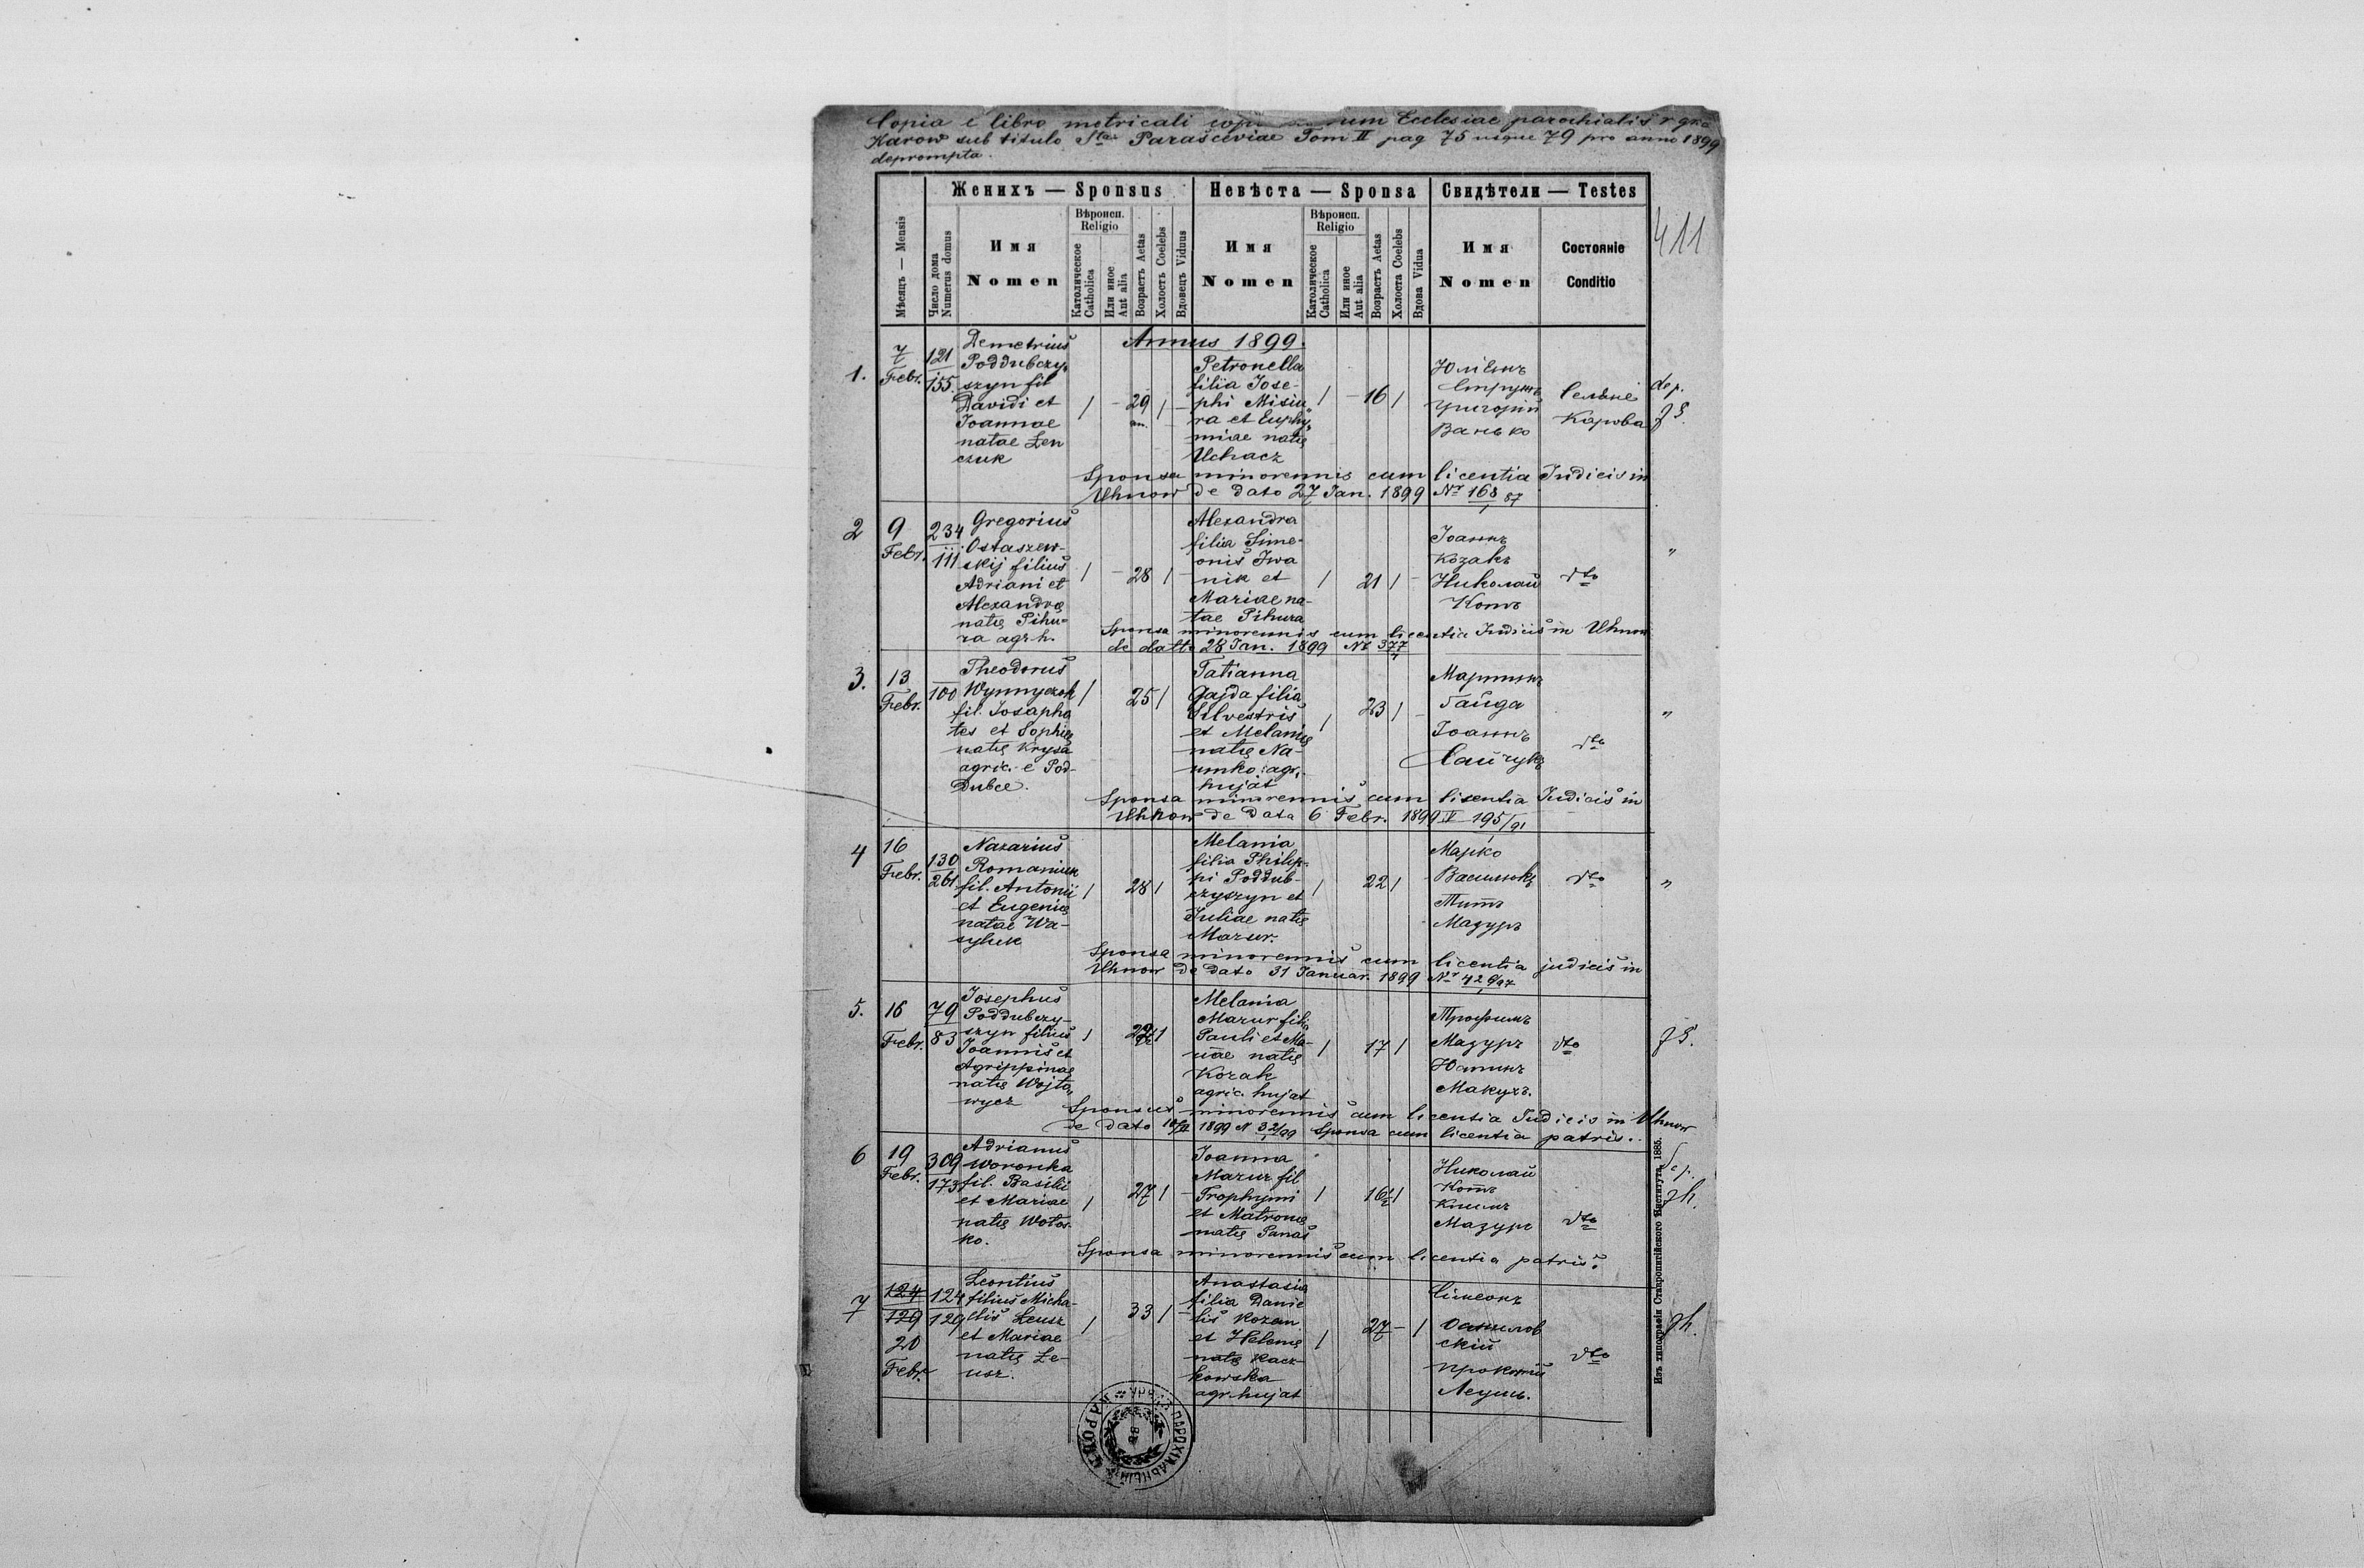 Copia e libro metricali Ecclesiae parochialis r. gr. c.
Karow sub titulo Stae Parasceviae Tom II pag 75 usque 79 pro anno 1899
deprompta.
411
Женихъ — Sponsus
Невѣста — Sponsa
Свидѣтели — Testes
Мѣсяцъ — Mensis
Число дома
Numerus domus
Имя
Nomen
Вѣроисп.
Religio
Католическое
Catholica
Или иное
Aut alia
Возрастъ Aetas
Холостъ Coelebs
Вдовецъ Viduus
Имя
Nomen
Вѣроисп.
Religio
Католическое
Catholica
Или иное
Aut alia
Возрастъ Aetas
Холоста Coelebs
Вдова Vidua
Имя
Nomen
Состоянiе
Conditio
Annus 1899.
1.
7
Febr.
121
155
Demetrius
Poddubczy-
szyn fil
Davidi et
Joannae
natae Łen
czuk
/ - 29 / -
Petronella
filia Jose-
phi Misiu
ra et Euphy-
miae natę
Uchacz
/ - 16 /
Юліянъ
Григорій
Ванько
Сельне
Карова
dep.
Sponsa minorennis cum licentia Judicis in
Uhnow de dato 27 Jan. 1899 Nr 168/87
2
9
Febr.
234
111
Gregorius
Ostaszew-
skij filius
Adriani et
Alexandrę
natę Pihu-
ra agr. h.
/ - 28 / -
Alexandra
filia Sime-
onis Iwa
nik et
Mariae na-
tae Pihura
/ 21 / -
Іоаннъ
Козакъ
Николай
Котъ
dto
"
Sponsa minorennis cum licentia Judicis in Uhnow
de datto 28 Jan. 1899 Nr 377
3.
13
Febr.
100
Theodorus
Wynnyczok
fil. Josapha
tes et Sophię
natę Krysa
agric. e Pod-
dubce.
/ 25 /
Tatianna
Gajda filia
Silvestris
et Melanię
natę Na-
umko agr.
hujat
/ 23 / -
Мартинъ
Гайда
Іоаннъ
Сайчукъ
dto
"
Sponsa minorennis cum licentia Judicis in
Uhnow de data 6 Febr. 1899 V 195/91
4
16
Febr.
130
261
Nazarius
Romaniuk
fil. Antonii
et Eugenię
natae Wa-
syluk
/ 28 /
Melania
filia Philip-
pi Poddub-
czyszyn et
Juliae natę
Mazur.
/ 22 / -
Марко
Василюкъ
Титъ
Мазуръ
dto
"
Sponsa minorennis cum licentia judicis in
Uhnow de dato 31 Januar. 1899 Nr 429/97
5.
16
Febr.
79
83
Josephus
Poddubczy-
szyn filius
Joannis et
Agrippinae
natę Wojto-
wycz
/
Melania
Mazur filia
Pauli et Ma-
riae natę
Kozak
agric. hujat
/ 17 /
Трофимъ
Мазуръ
Макухъ.
dto
Sponsus minorennis cum licentia Judicis in Uhnow
de dato 1899 N 32/99 Sponsa cum licentia patris.
6
19
Febr.
309
173
Adrianus
Woronka
fil. Basilii
et Mariae
natę Wotos-
ko.
/ 27 / -
Joanna
Mazur fil
Trophymi
et Matronę
natę Panas
/ 16½ /
Николай
Котъ
Климъ
Мазуръ
dto
Sponsa minorennis cum licentia patris.
7
124
129
20
Febr.
124
129
Leontius
filius Micha-
elis Leusz
et Mariae
natę Łe-
usz.
/ 33 / -
Anastasia
filia Danie
lis Kozan
et Helenę
natę Kacz-
kowska
agr. hujat
/ 27 - /
Симеонъ
Прокопій
Леушъ.
dto
Изъ типографіи Ставропигійского Института, 1885.